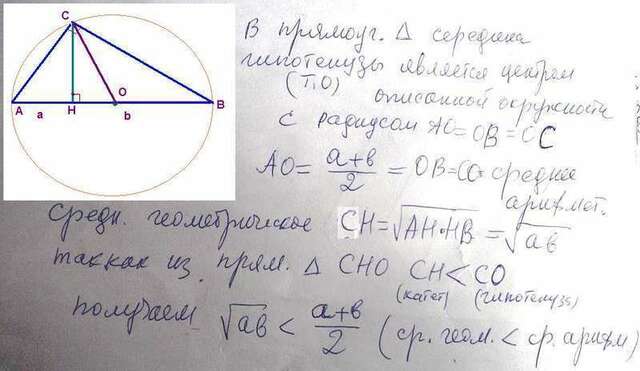 C
A
a
H
O
b
B
В прямоуг. Δ середина
гипотенузы является центром
(т.О)
описанной окружности
с радиусом AO=OB=OC
AO = a+b/2 = OB=CO - среднее
арифмет.
Средн. геометрическое CH=√AH·HB = √ab
так как из прям. Δ CHO CH < CO
(катет) (гипотенуза)
получаем √ab < a+b/2 (ср. геом. < ср. арифм)